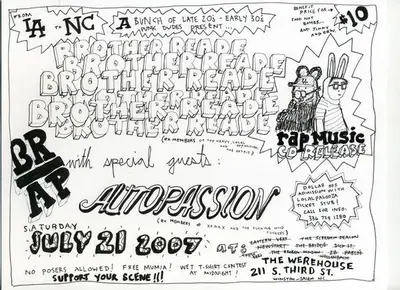 FROM
LA TO NC
A BUNCH OF LATE 20'S - EARLY 30'S
PUNK DUDES PRESENT...
BENEFIT
PRICE FOR
$10
BROTHER READE
BROTHER READE
BROTHER READE
BROTHER READE
BROTHER READE
BROTHER READE
rap Music
CD RELEASE
BR
AP
with special guests:
AUTOPASSION
(EX MEMBERS
DOLLAR OFF
ADMISSION WITH
LOCAL
TICKET STUB!
CALL FOR INFO:
336 724 1280
SATURDAY
JULY 21 2007
AT:
THE WEREHOUSE
211 S. THIRD ST.
WINSTON-SALEM NC
NO POSERS ALLOWED! FREE MUMIA! WET T-SHIRT CONTEST
AT MIDNIGHT!
SUPPORT YOUR SCENE!!!